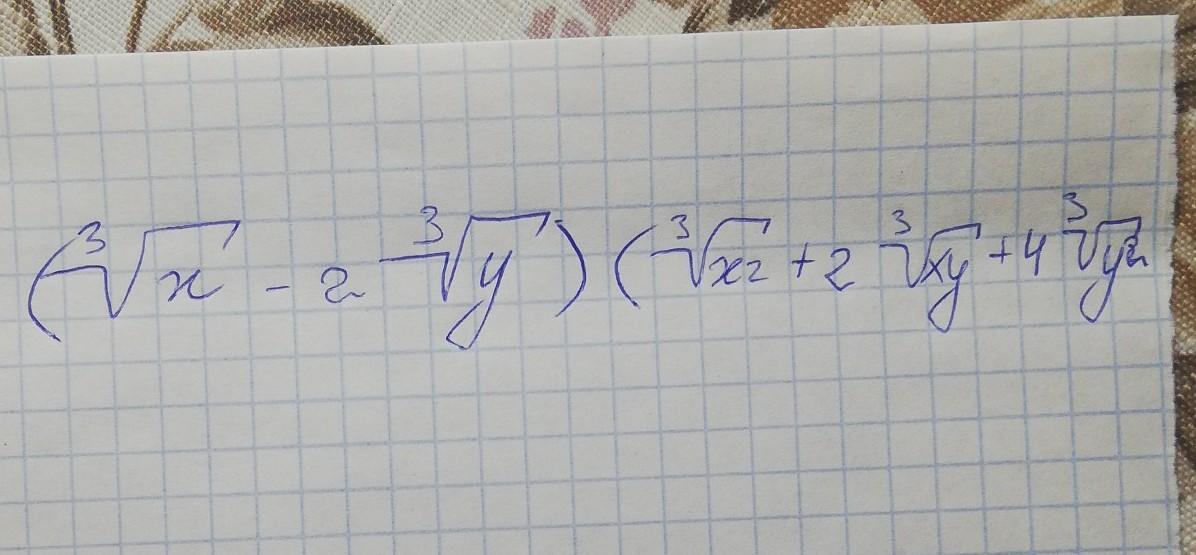 (³√x - 2 ³√y) (³√x2 + 2 ³√xy + 4 ³√y²